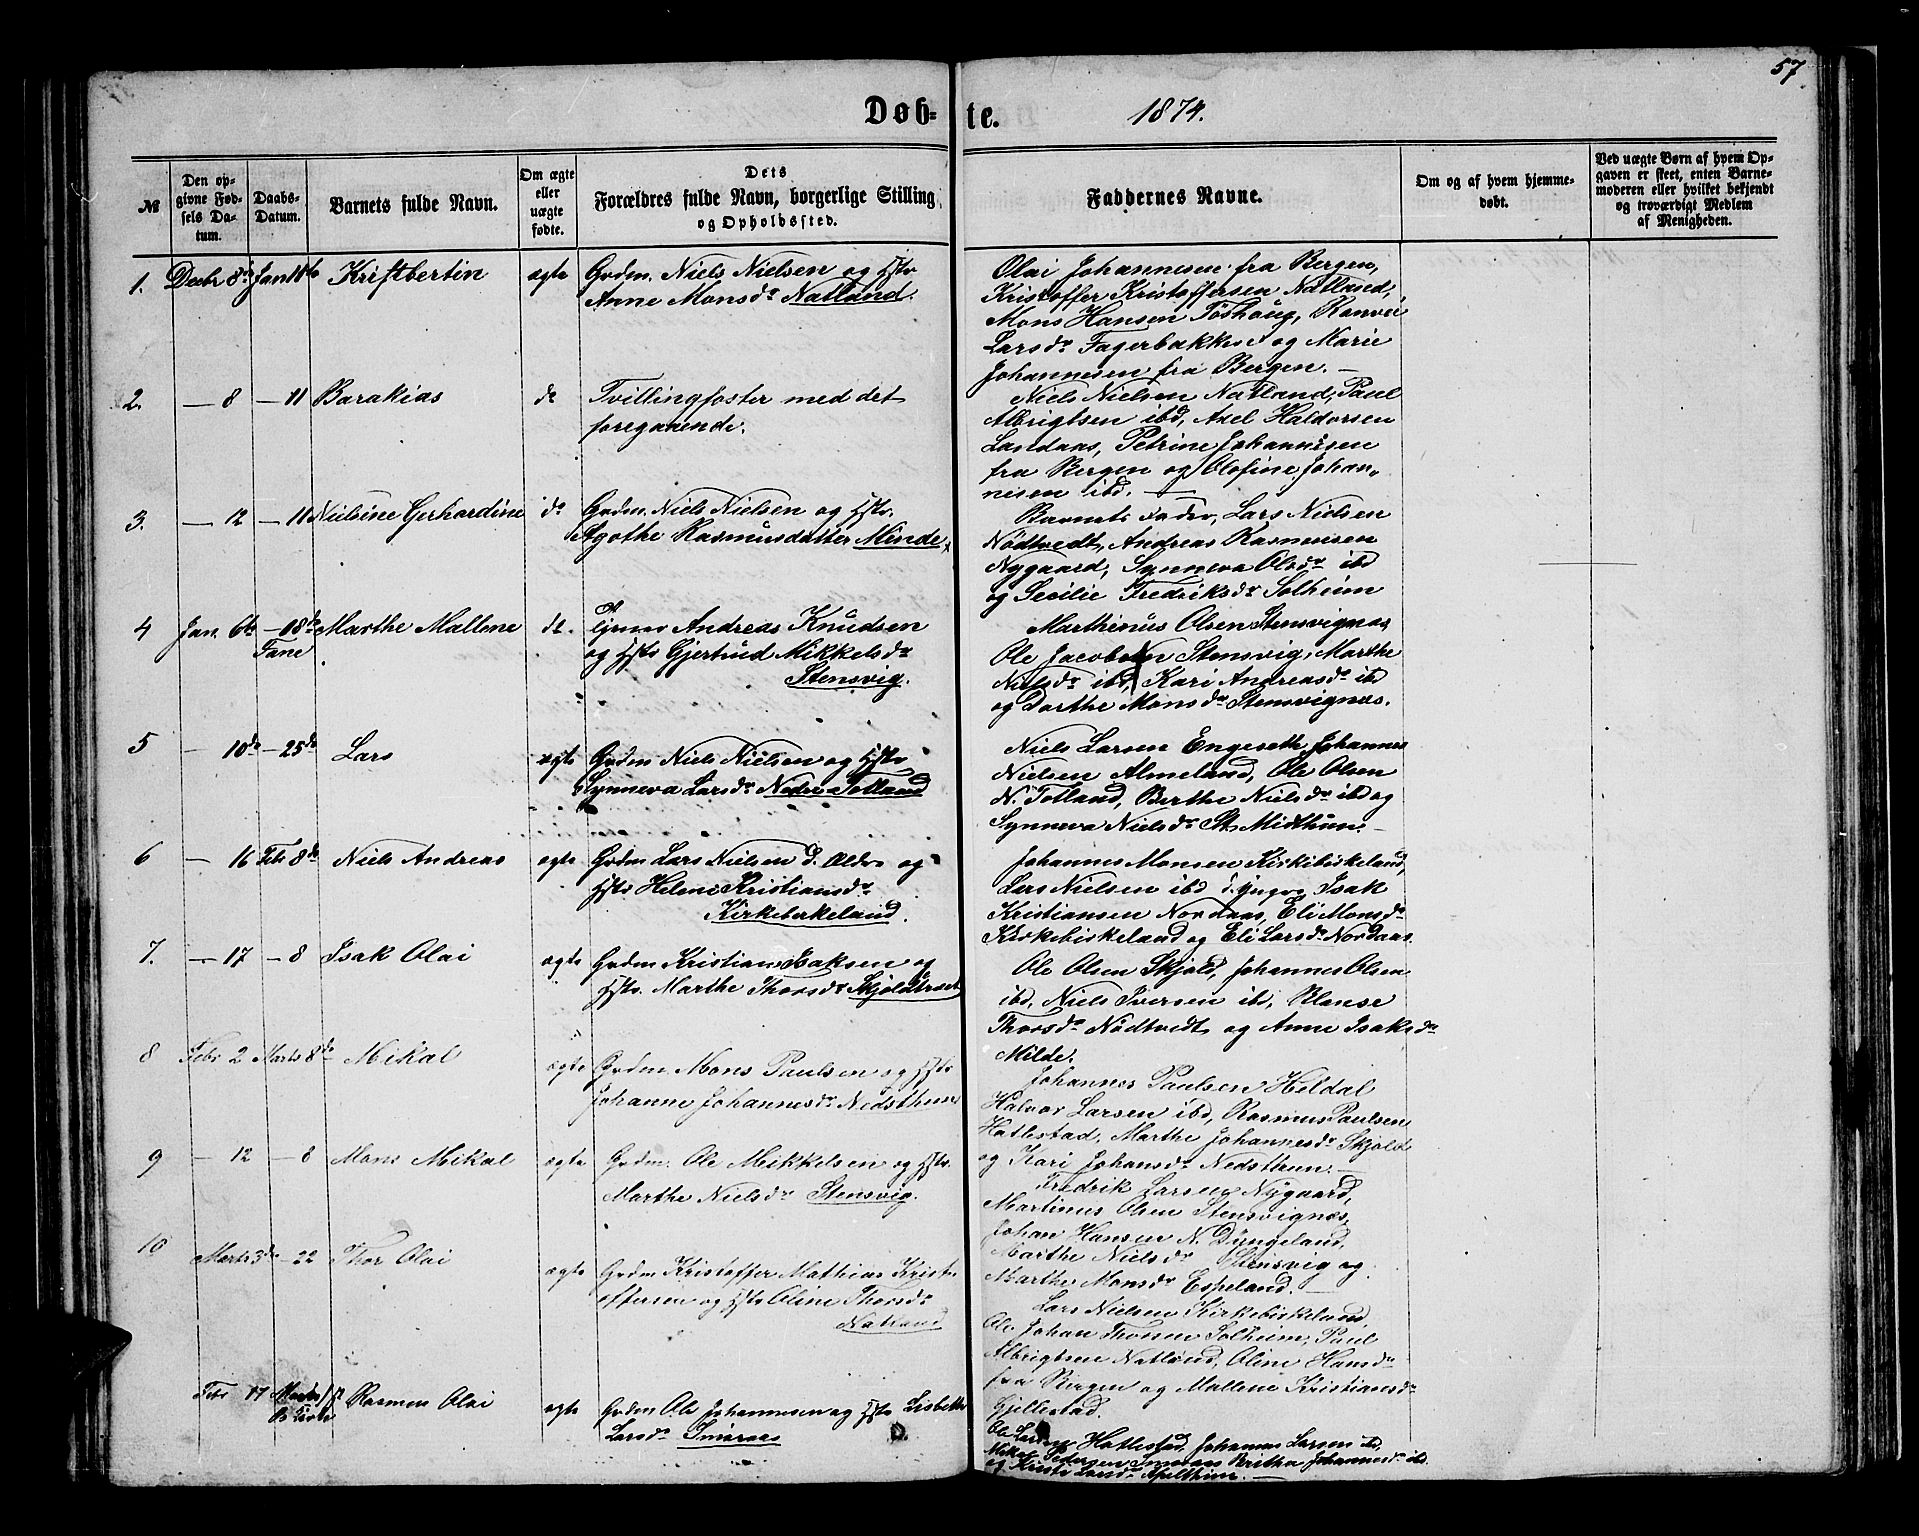 57
Døb- te. 1874.
№
Den opgivne Fødsels Datum.
Daabs-Datum.
Barnets fulde Navn.
Om ægte eller uægte fødte.
Dets Forældres fulde Navn, borgerlige Stilling og Opholdssted.
Faddernes Navne.
Om og af hvem hjemmedøbt.
Ved uægte Børn af hvem Opgaven er skeet, enten Barnemoderen eller hvilket bekjendt og troværdigt Medlem af Menigheden.
1. Decbr 8de Jan 11te Kristbertin ægte Grdm. Niels Nielsen og Hstr
Anne Monsdr Natland.
Olai Johannesen fra Bergen,
Kristoffer Kristoffersen Natland,
Mons Hansen Toshoug, Ranvei
Larsdr Fagerbakken og Marie
Johannesen fra Bergen.
2. — 8 — 11 Barakias do Tvillingfoster med det
foregaaende.
Niels Nielsen Natland, Paul
Albrigtsen ibd, Axel Haldorsen
Landaas, Petrine Johannesen
fra Bergen og Olefine Johan-
nesen ibd.
3. — 12 — 11 Nielsine Gerhardine do Grdm. Niels Nielsen og Hstr.
Agothe Rasmusdatter Minde
Barnets Fader, Lars Nielsen
Nödtvedt, Andreas Rasmusen
Nygaard, Synneva Olsdr ibd
og Secilie Fredriksdr Solheim
4 Jan. 6te — 18de Marthe Mallene do. Andreas Knudsen
Fane og Hstr Gjertrud Mikkelsdr
Stensvig.
Marthinus Olsen Stensvignæs,
Ole Jacobsen Stensvig, Marthe
Nielsdr ibd, Kari Andreasdr ibd
og Dorthe Monsdr Stensvignæs.
5 — 10de — 25de Lars ægte Grdm Niels Nielsen og Hstr
Synneva Larsdr Nedre Totland
Niels Larsen Engeseth, Johannes
Nielsen Almeland, Ole Olsen
N. Totland, Berthe Nielsdr ibd og
Synneva Nielsdr St. Midthun.
6 — 16 Febr 8de Niels Andreas ægte Grdm Lars Nielsen d. Ældre og
Hstr Helene Kristiansdr
Kirkebirkeland.
Johannes Monsen Kirkebirkeland,
Lars Nielsen ibd d. yngre, Isak
Kristiansen Nordaas, Eli Monsdr
Kirkebirkeland og Eli Larsdr Nordaas.
7. — 17 — 8 Isak Olai ægte Grdm Kristian Isaksen og
Hstr. Marthe Thorsdr Skjoldtræet
Ole Olsen Skjold, Johannes Olsen
ibd, Niels Iversen ibd,
Thorsdr Nödtvedt og Anne Isaksdr
Milde.
8 Febr 2 Marts 8de Mikal ægte Grdm. Mons Paulsen og Hstr
Johanne Johannesdr Nedsthun
Johannes Paulsen Heldal
Halvor Larsen ibd, Rasmus Paulsen
Hatlestad, Marthe Johannesdr Skjold
og Kari Johansdr Nedsthun.
9 — 12 — 8 Mons Mikal ægte Grdm. Ole Mikkelsen og Hstr.
Marthe Nielsdr Stensvig.
Fredrik Larsen Nygaard,
Martinus Olsen Stensvignæs,
Johan Hansen N. Dyngeland,
Marthe Nielsdr Stensvig og
Marthe Monsdr Espeland.
10 Marts 3de — 22 Thor Olai ægte Grdm Kristoffer Mathias Krist-
offersen og Hstr Oline Thorsdr
Natland
Lars Nielsen Kirkebirkeland,
Ole Johan Thorsen Solheim, Paul
Albrigtsen Natland, Oline Hansdr
fra Bergen og Mallene Kristiansdr
Gjellestad.
Febr 17 Marts Rasmus Olai ægte Grdm Ole Johannesen og Hstr Lisbeth
Larsdr Smøraas
Ole Larsen Hatlestad, Johannes Larsen ibd,
Mikal Pedersen Smøraas Britha Johannesdr ibd.
og Kristi Larsdr Apelthun.